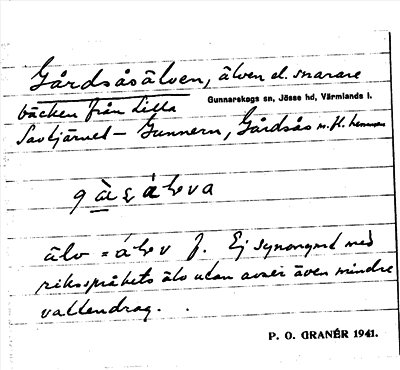 Gårdsåsälven, älven el. snarare
bäcken från Lilla
Gunnarskogs sn, Jösse hd, Värmlands l.
Savtjärnet - Gunnern, Gårdsås m. fl.
älv = f. Ej synonymt med
riksspråkets älv utan avser även mindre
vattendrag.
P. O. GRANÉR 1941.